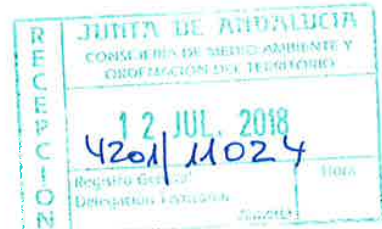 RECEPCION
JUNTA DE ANDALUCIA
CONSEJERÍA DE MEDIO AMBIENTE Y
ORDENACIÓN DEL TERRITORIO
12 JUL. 2018
4201/11024
Registro General
Delegación Territorial
Hora